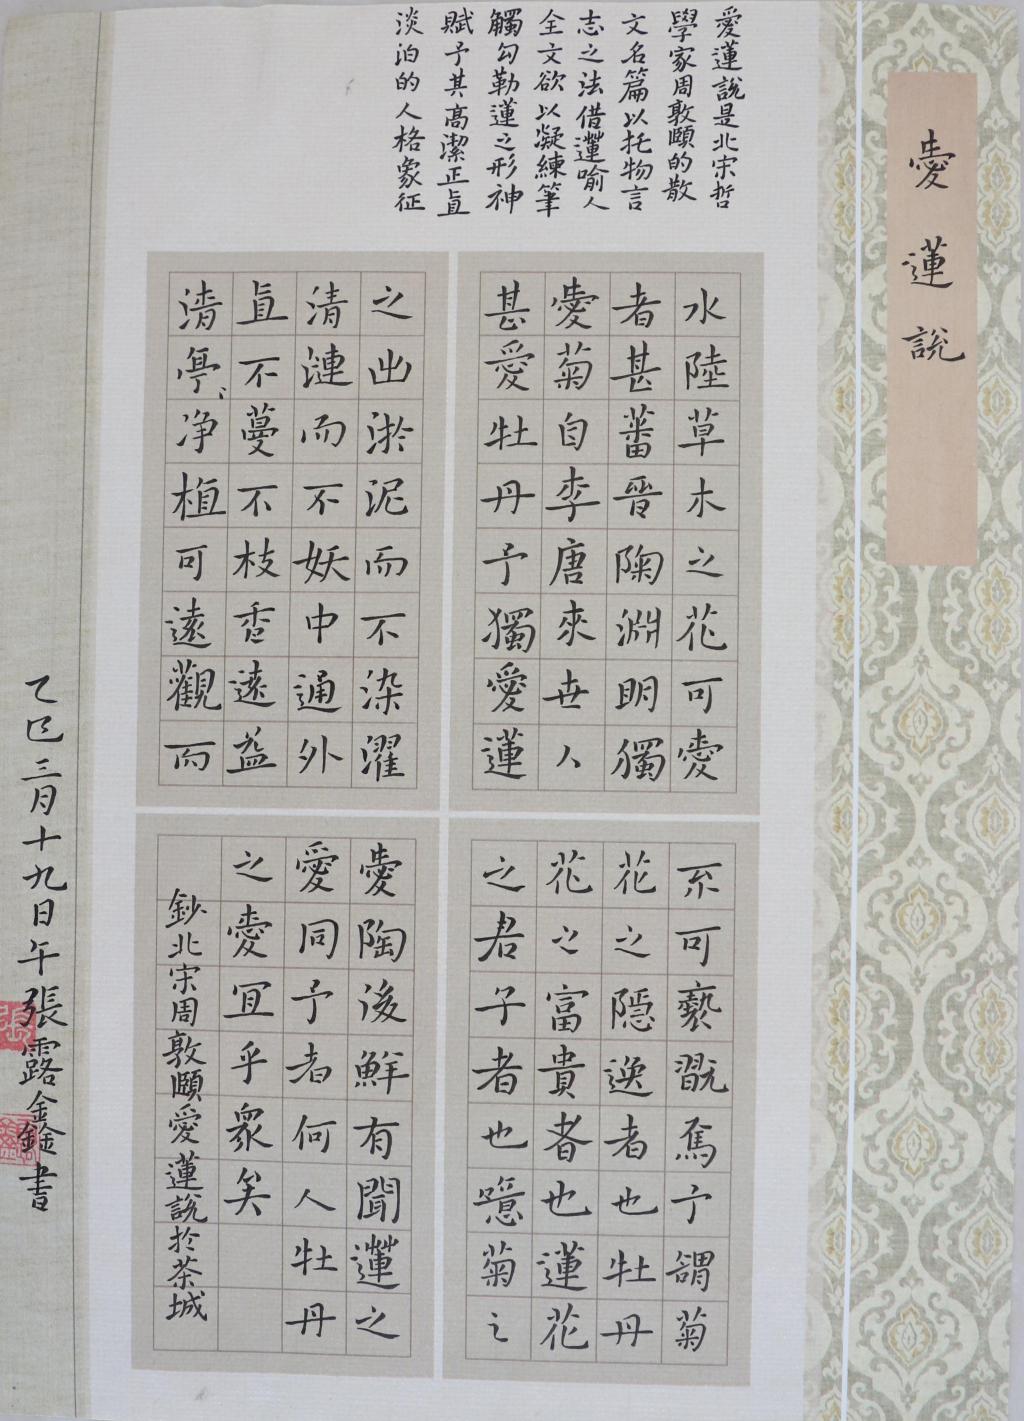 愛蓮說
愛蓮說是北宋哲
學家周敦頤的散
文名篇以托物言
志之法借蓮喻人
全文欲以凝練筆
觸勾勒蓮之形神
賦予其高潔正直
淡泊的人格象征
水陸草木之花可愛
者甚蕃晉陶淵明獨
愛菊自李唐來世人
甚愛牡丹予獨愛蓮
之出淤泥而不染濯
清漣而不妖中通外
直不蔓不枝香遠益
清亭〻净植可遠觀而
不可褻翫焉予謂菊
花之隱逸者也牡丹
花之富貴者也蓮花
之君子者也噫菊之
愛陶後鮮有聞蓮之
愛同予者何人牡丹
之愛宜乎衆矣
鈔北宋周敦頤愛蓮說於茶城
乙巳三月十九日午張露金鑫書